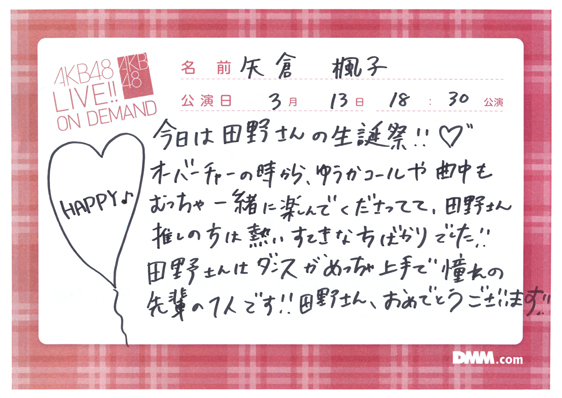 AKB48
LIVE!!
ON DEMAND
AKB
48
名 前 矢倉 楓子
公演日 3月 13日 18:30 公演
今日は田野さんの生誕祭!!♡
オーバーチャーの時から、ゆうかコールや曲中も
むっちゃ一緒に楽しんでくださってて、田野さん
推しの方は熱いすてきな方ばかりでした!!
田野さんはダンスがめっちゃ上手で憧れの
先輩の1人です!!田野さん、おめでとうございます!!
HAPPY♪
DMM.com